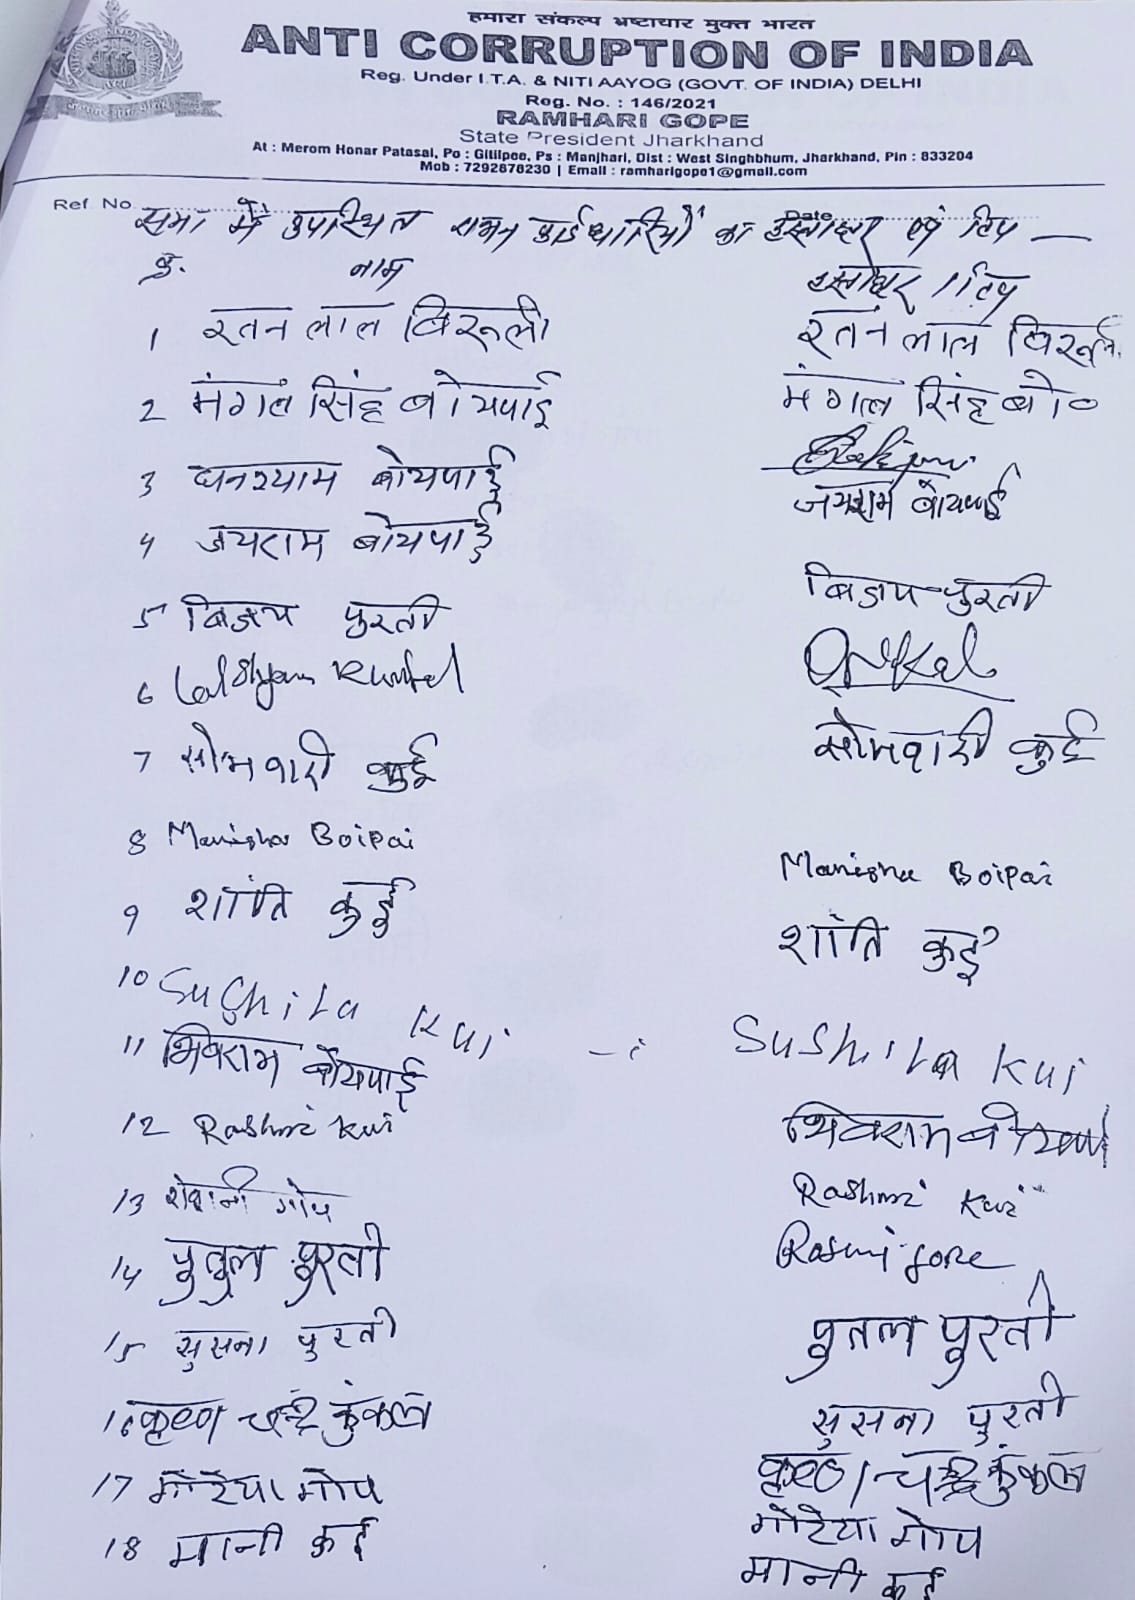 हमारा संकल्प भ्रष्टाचार मुक्त भारत
ANTI CORRUPTION OF INDIA
Reg. Under I.T.A. & NITI AAYOG (GOVT. OF INDIA) DELHI
Reg. No. : 146/2021
RAMHARI GOPE
State President Jharkhand
At : Merom Honar Patasai, Po : Gitilpee, Ps : Manjhari, Dist : West Singhbhum, Jharkhand, Pin : 833204
Mob : 7292878230 | Email : ramharigope1@gmail.com
Ref No. Date
सभा में उपस्थित राशन कार्डधारियों का हस्ताक्षर एवं टिप —
क्र. नाम हस्ताक्षर / टिप
1 रतन लाल बिरूली रतन लाल बिरूली
2 मंगल सिंह बोयपाई मंगल सिंह बो०
3 घनश्याम बोयपाई
4 जयराम बोयपाई जयराम बोयपाई
5 बिजय पुरती बिजय पुरती
6 Lalshyam Kunkal
7 सोमवारी कुई सोमवारी कुई
8 Manisha Boipai Manisha Boipai
9 शांति कुई शांति कुई
10 Sushila Kui Sushila Kui
11 शिवराम बोयपाई शिवराम बोयपाई
12 Rashmi Kui Rashmi Kui
13 गोप Rasmi gope
14 पुतुल पुरती पुतल पुरती
15 सुसना पुरती सुसना पुरती
16 कृष्ण चन्द्र कुंकल कृष्ण चन्द्र कुंकल
17 गोरेया गोप गोरेया गोप
18 मानी कुई मानी कुई